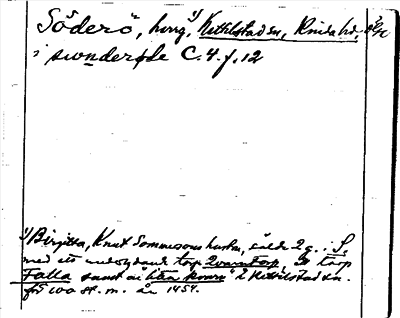 Söderö, herrg,¹⁾ Kettilstad sn, Kinda hd, Ög
i swnderøde C.4.f.12
¹⁾Birgitta, Knut Sommesons hustru, sålde 2 g. i S.
med ett underlydande torp Qvarntorp, et torp
Falla samt en "liten kvarn" i Kettilstad sn.
för 100 st. m. år 1454.